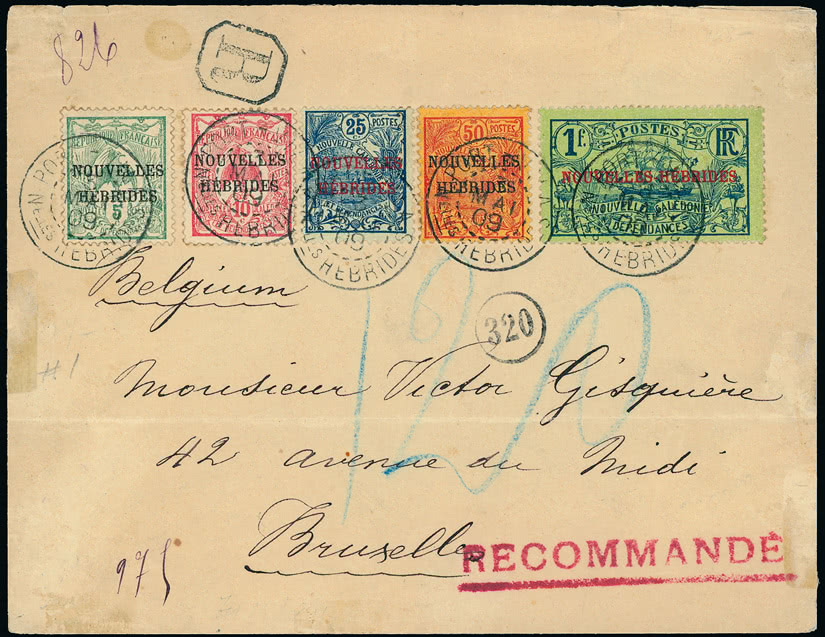 826
R
RÉPUBLIQUE FRANÇAISE
NOUVELLES
HÉBRIDES
5
NOUVELLES
HÉBRIDES
10
25 POSTES
NOUVELLES
HÉBRIDES
50 POSTES
NOUVELLES
HÉBRIDES
1f. POSTES RF
NOUVELLES HÉBRIDES
NOUVELLE CALÉDONIE
DÉPENDANCES
PORT
MAI
09
Nlles HEBRIDES
Belgium
320
120
#1
Monsieur Victor Gisquière
42 avenue du Midi
Bruxelles
RECOMMANDÉ
975